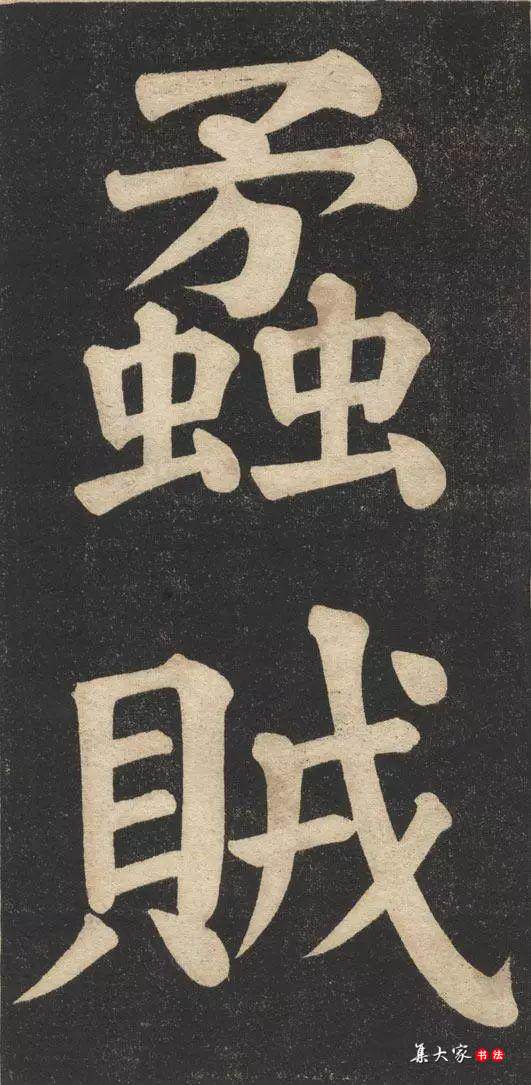 蟊賊
集大家 书法